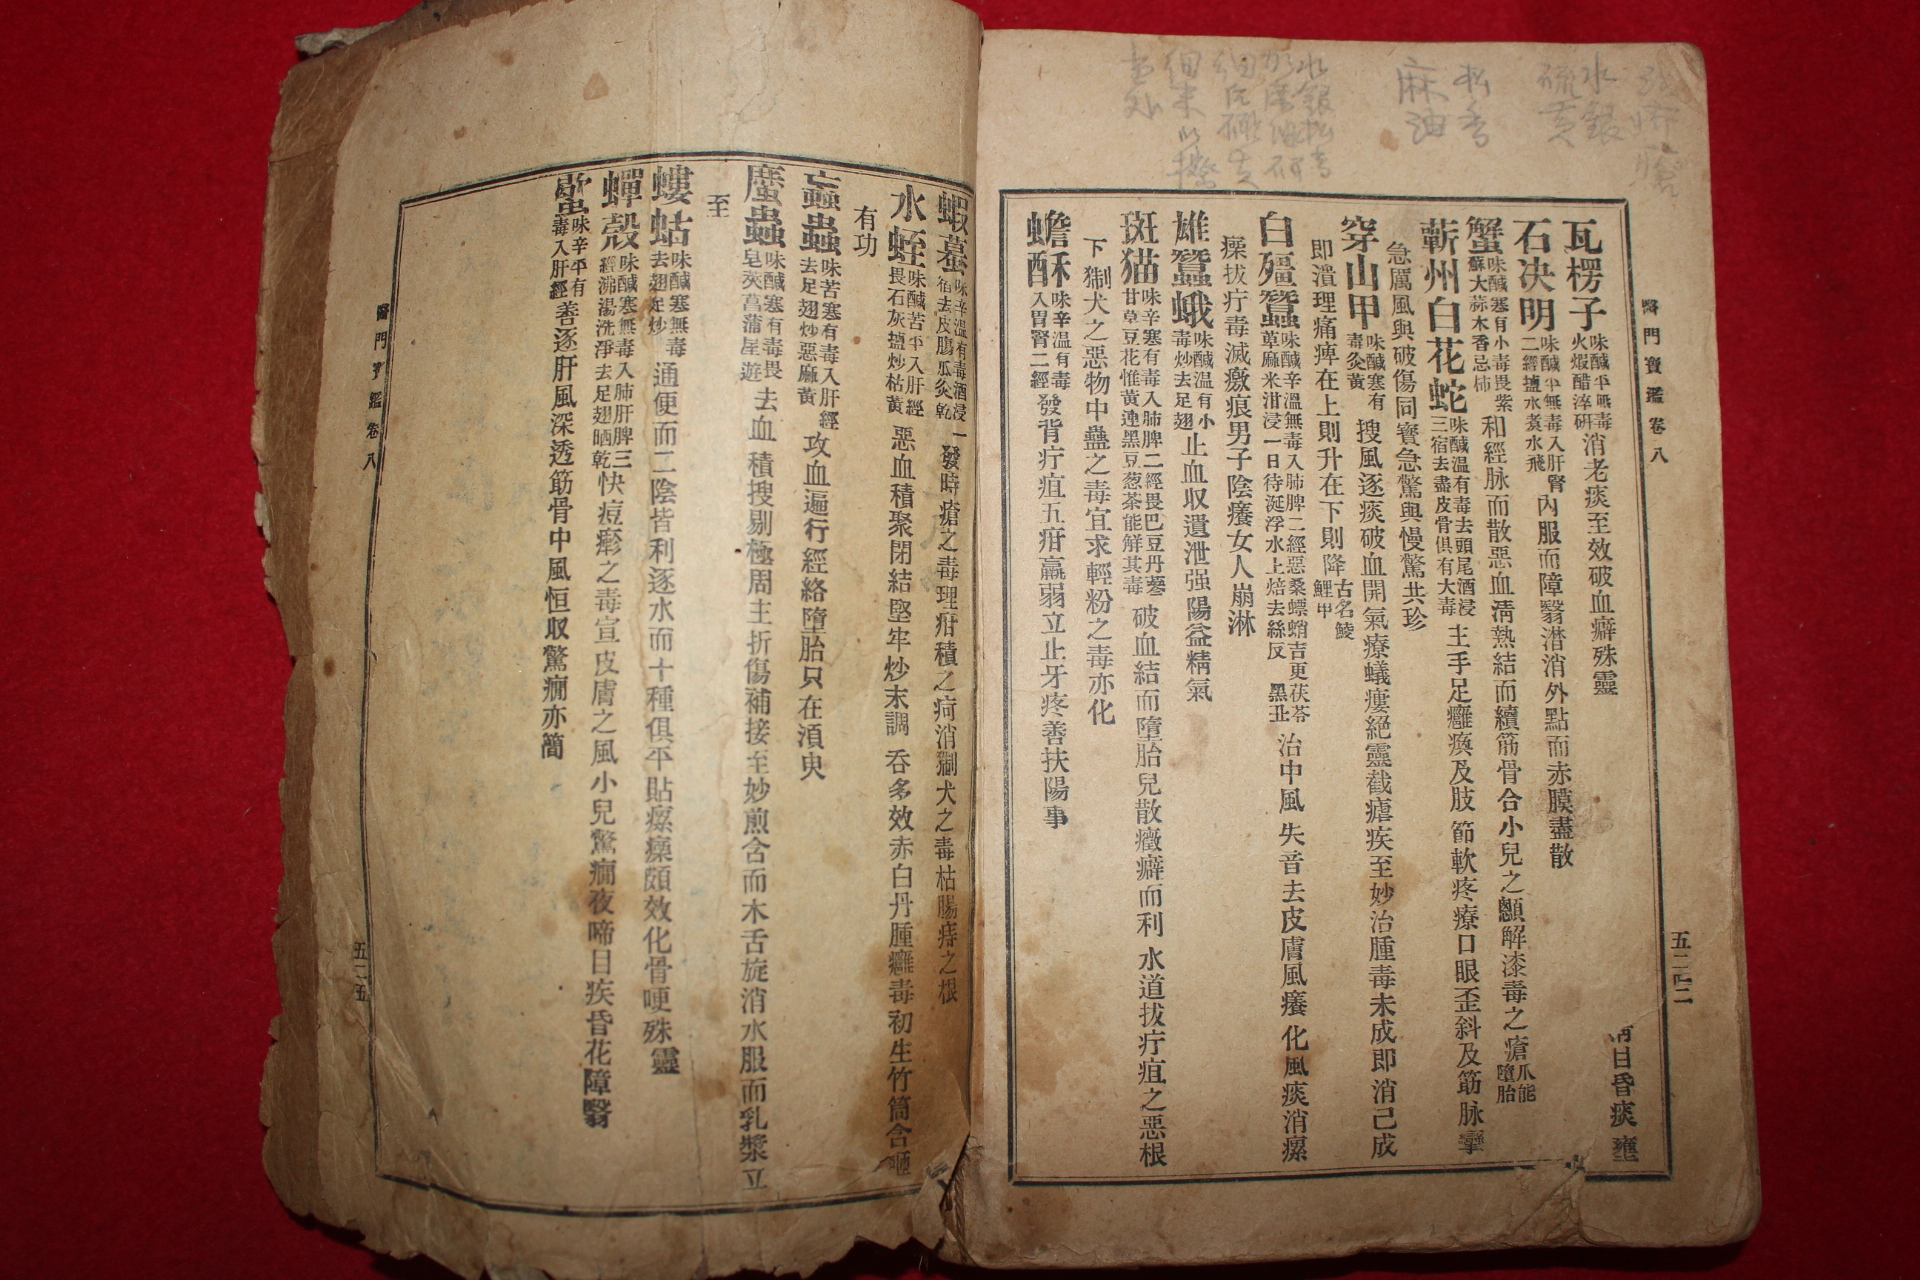 醫門寶鑑卷八
五二三
目昏痰壅
瓦楞子 味醎平無毒火煆醋淬研 消老痰至效破血癖殊靈
石決明 味醎平無毒入肝腎二經塩水煑水飛 內服而障翳潛消外點而赤膜盡散
蟹 味醎寒有小毒畏紫蘇大蒜木香忌柿 和經脉而散惡血淸熱結而續筋骨合小兒之顱解漆毒之瘡 爪能墮胎
蘄州白花蛇 味醎溫有毒去頭尾酒浸三宿去盡皮骨俱有大毒 主手足癱瘓及肢節軟疼療口眼歪斜及筋脉攣
急厲風與破傷同寶急驚與慢驚共珍
穿山甲 味醎寒有毒灸黃 搜風逐痰破血開氣療蟻瘻絕靈截瘧疾至妙治腫毒未成即消已成
即潰理痛痺在上則升在下則降 古名鯪鯉甲
白殭蠶 味醎辛溫無毒入肺脾二經惡桑螵蛸吉更茯苓萆麻米泔浸一日待涎浮水上焙去絲反黑 治中風失音去皮膚風癢化風痰消瘰
癧拔疔毒滅瘢痕男子陰癢女人崩淋
雄蠶蛾 味醎溫有小毒炒去足翅 止血収遺泄强陽益精氣
斑猫 味辛寒有毒入肺脾二經畏巴豆丹蔘甘草豆花惟黃連黑豆葱茶能解其毒 破血結而墮胎兒散癥癖而利水道拔疔疽之惡根
下猘犬之惡物中蠱之毒宜求輕粉之毒亦化
蟾酥 味辛溫有毒入胃腎二經 發背疔疽五疳羸弱立止牙疼善扶陽事
蝦蟇 味辛溫有毒酒浸一宿去皮膓瓜灸乾 發時瘡之毒理疳積之疴消猘犬之毒枯腸痔之根
水蛭 味醎苦平入肝經畏石灰塩炒枯黃 惡血積聚閉結堅牢炒末調呑多效赤白丹腫癰毒初生竹筒含咂
有功
蝱蟲 味苦寒有毒入肝經去足翅炒惡麻黃 攻血遍行經絡墮胎只在湏臾
䗪蟲 味醎寒有毒畏皂莢菖蒲屋遊 去血積搜剔極周主折傷補接至妙煎含而木舌旋消水服而乳漿立
至
螻蛄 味醎寒無毒去翅足炒 通便而二陰皆利逐水而十種俱平貼瘰癧頗效化骨哽殊靈
蟬殼 味醎寒無毒入肺肝脾三經沸湯洗淨去足翅晒乾 快痘瘮之毒宣皮膚之風小兒驚癇夜啼目疾昏花障翳
味辛平有毒入肝經 善逐肝風深透筋骨中風恒収驚癇亦簡
醫門寶鑑卷八
五二五
水銀
硫黃
松香
麻油